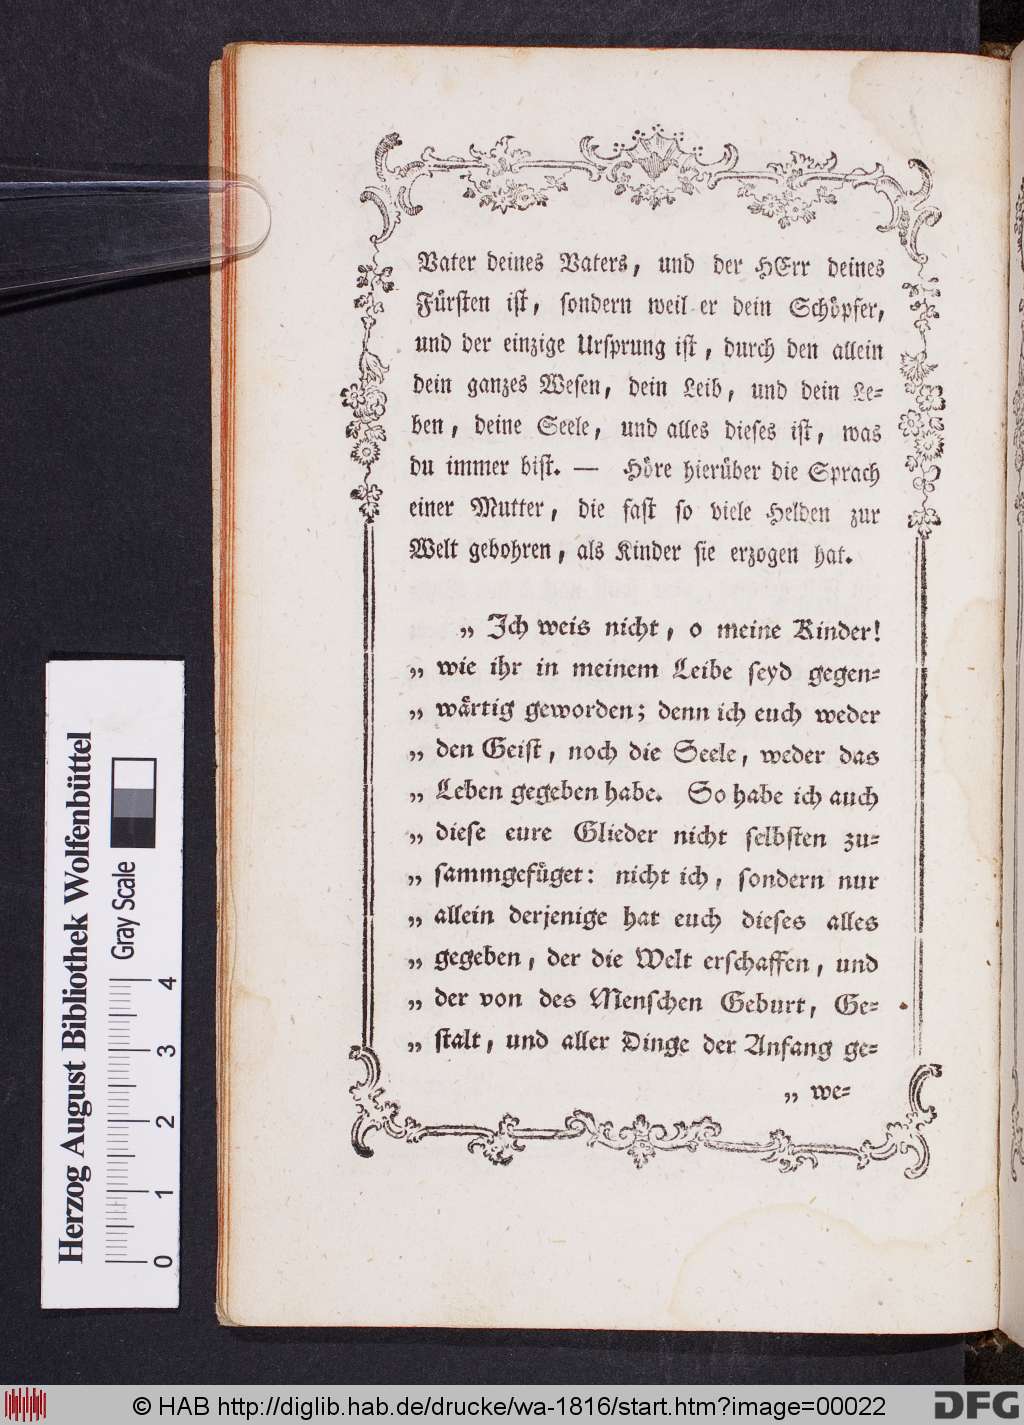 Vater deines Vaters, und der HErr deines
Fürsten ist, sondern weil er dein Schöpfer,
und der einzige Ursprung ist, durch den allein
dein ganzes Wesen, dein Leib, und dein Le-
ben, deine Seele, und alles dieses ist, was
du immer bist. — Höre hierüber die Sprach
einer Mutter, die fast so viele Helden zur
Welt gebohren, als Kinder sie erzogen hat.
„ Ich weis nicht, o meine Kinder!
„ wie ihr in meinem Leibe seyd gegen-
„ wärtig geworden; denn ich euch weder
„ den Geist, noch die Seele, weder das
„ Leben gegeben habe. So habe ich auch
„ diese eure Glieder nicht selbsten zu-
„ sammgefüget: nicht ich, sondern nur
„ allein derjenige hat euch dieses alles
„ gegeben, der die Welt erschaffen, und
„ der von des Menschen Geburt, Ge-
„ stalt, und aller Dinge der Anfang ge-
„ we-
Herzog August Bibliothek Wolfenbüttel
Gray Scale
0 1 2 3 4
© HAB http://diglib.hab.de/drucke/wa-1816/start.htm?image=00022
DFG